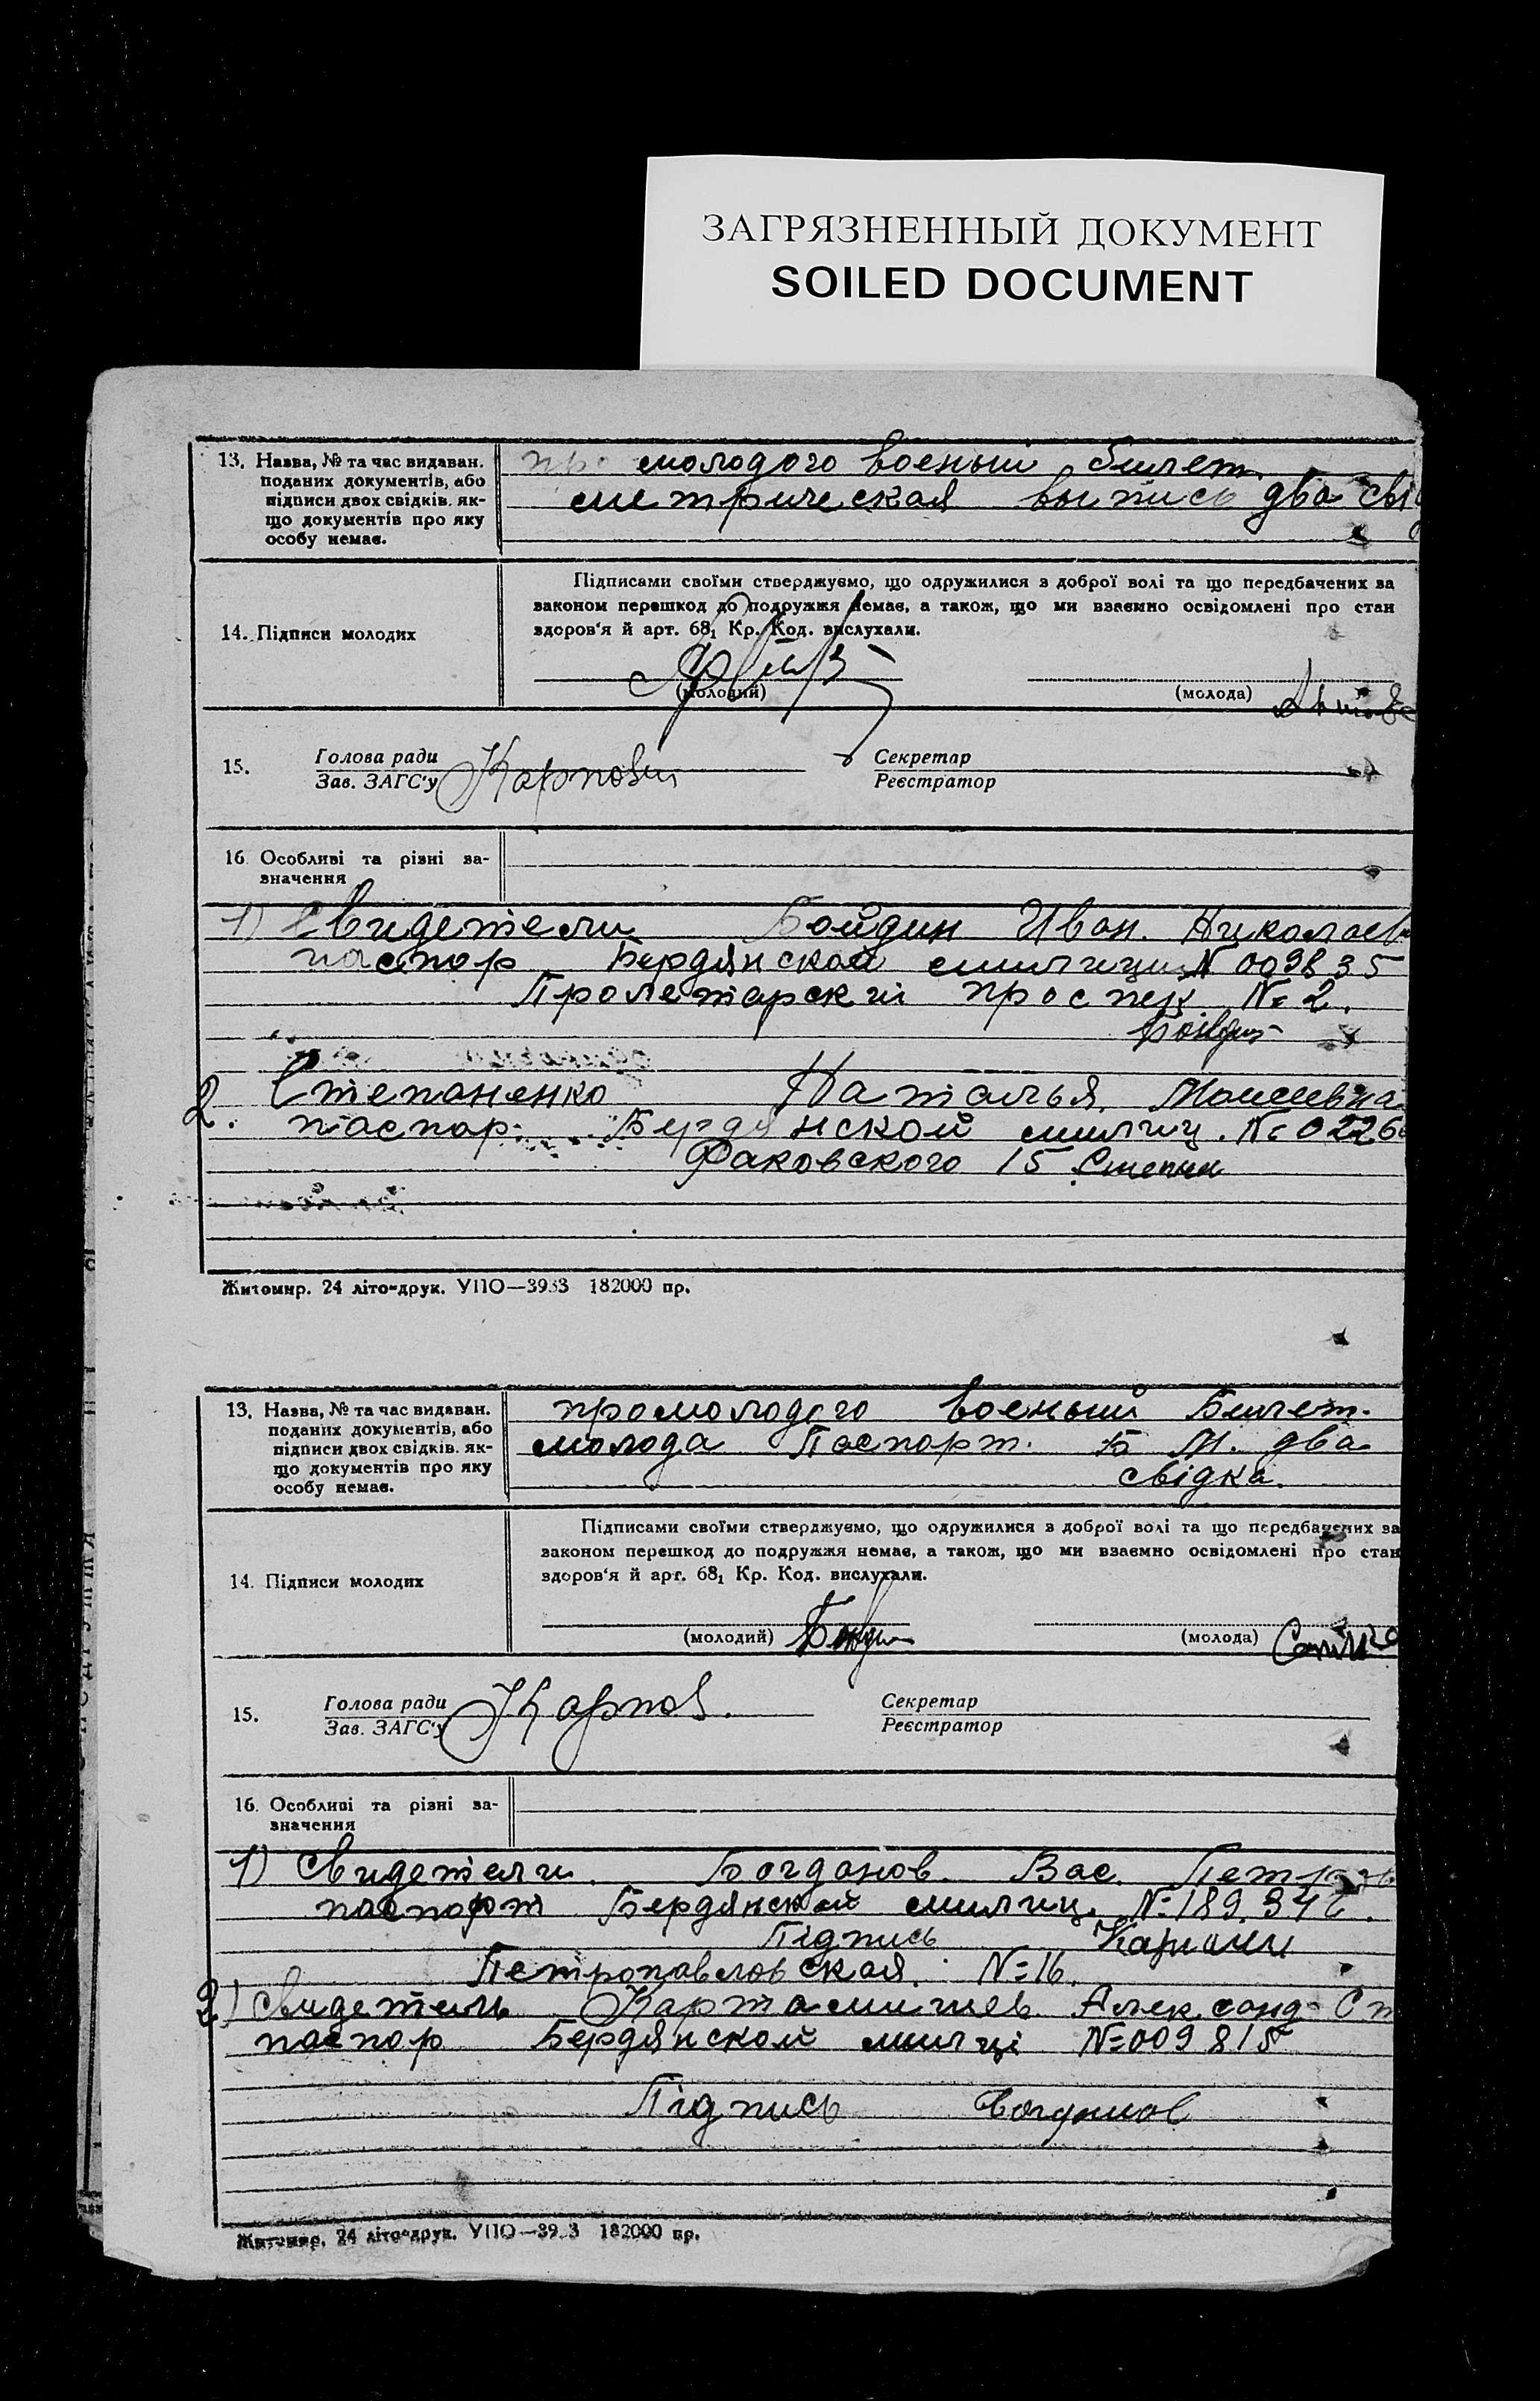 ЗАГРЯЗНЕННЫЙ ДОКУМЕНТ
SOILED DOCUMENT
13. Назва, № та час видаван.
поданих документів, або
підписи двох свідків, як-
що документів про яку
особу немає.
про молодого военый билет
метрическая выпись два сві
14. Підписи молодих
Підписами своїми стверджуємо, що одружилися з доброї волі та що передбачених за
законом перешкод до подружжя немає, а також, що ми взаємно освідомлені про стан
здоров'я й арт. 68₁ Кр. Код. вислухали.
(молодий)
(молода)
15.
Голова ради
Зав. ЗАГС'у
Секретар
Реєстратор
16. Особливі та різні за-
значення
1) Свидетели Бойдин Иван. Николаев
паспор Бердянской милиции N 009835
Пролетарский проспек № 2.
2. Степаненко Наталья Моисеевна
паспор. Бердянской милиц. № 0226
Раковского 15
Житомир. 24 літо-друк. УПО—3933 182000 пр.
13. Назва, № та час видаван.
поданих документів, або
підписи двох свідків, як-
що документів про яку
особу немає.
про молодого военый Билет.
молода Паспорт. Б М. два
свідка.
14. Підписи молодих
Підписами своїми стверджуємо, що одружилися з доброї волі та що передбачених за
законом перешкод до подружжя немає, а також, що ми взаємно освідомлені про стан
здоров'я й арт. 68₁ Кр. Код. вислухали.
(молодий)
(молода)
15.
Голова ради
Зав. ЗАГС'у
Карпов.
Секретар
Реєстратор
16. Особливі та різні за-
значення
1) Свидетели. Богданов. Вас. Петр
паспорт Бердянской милиц. №189.342.
Підпись
Петропавловская. №16.
2) свидетель Картамишев Александ. Ст
паспор Бердянской милці №009815
Підпись Богданов
Житомир. 24 літо-друк. УПО—3933 182000 пр.